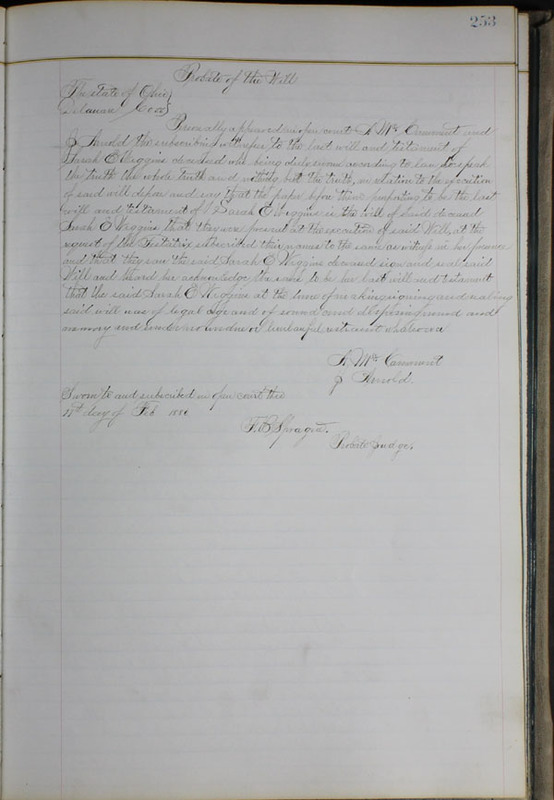 253
Probate of the Will
The State of Ohio }
Delaware Co ss }
Personally appeared in open court A Mc Cammont and
J Arnold the subscribing witnesses to the last will and testament of
Sarah E Wiggins deceased who being duly sworn according to law to speak
the truth the whole truth and nothing but the truth, in relation to the execution
of said will depose and say that the paper before them purporting to be the last
will and testament of Sarah E Wiggins is the will of said deceased
Sarah E Wiggins that they were present at the execution of said Will, at the
request of the Testatrix subscribed their names to the same as witness in her presence
and that they saw the said Sarah E Wiggins deceased sign and seal said
Will and heard her acknowledge the same to be her last will and testament
that the said Sarah E Wiggins at the time of making signing and sealing
said will was of legal age and of sound and disposing mind and
memory and under no undue or unlawful restraint whatsoever
A Mc Cammont
J Arnold.
Sworn to and subscribed in open court this
day of Feb 1886
F. B. Sprague.
Probate Judge.